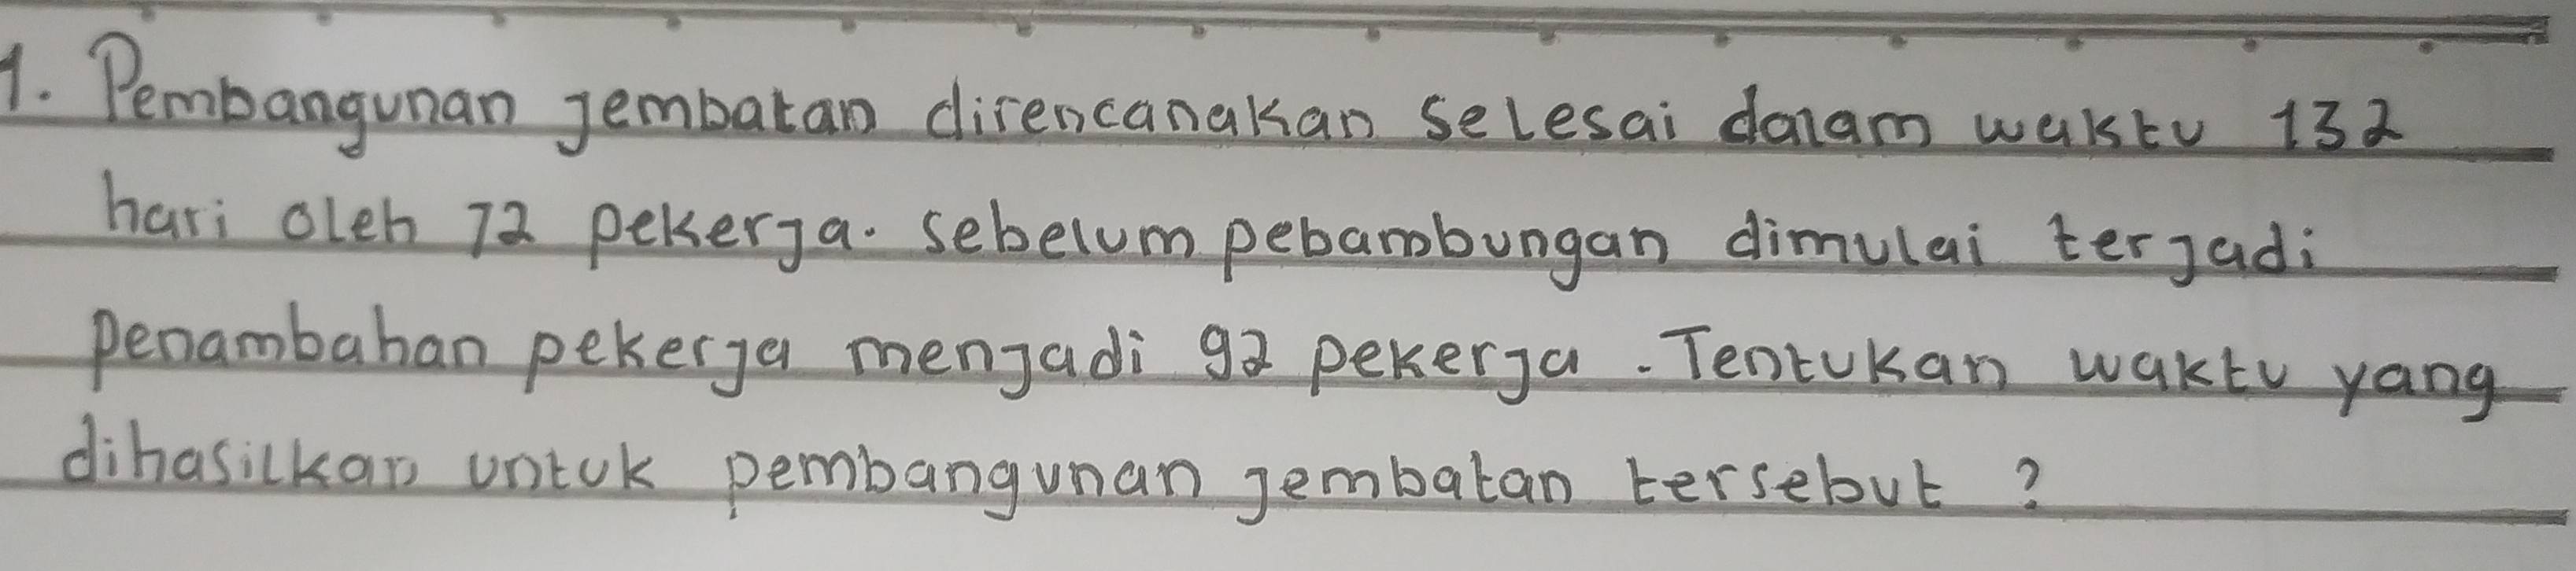 1. Pembangunan jembatan direncanakan selesai dalam waktu 132
hari oleh 72 pekerja. sebelum pebambungan dimulai terjadi
penambahan pekerja menjadi 92 pekerja. Tentukan waktu yang
dihasilkan untuk pembangunan jembatan tersebut ?